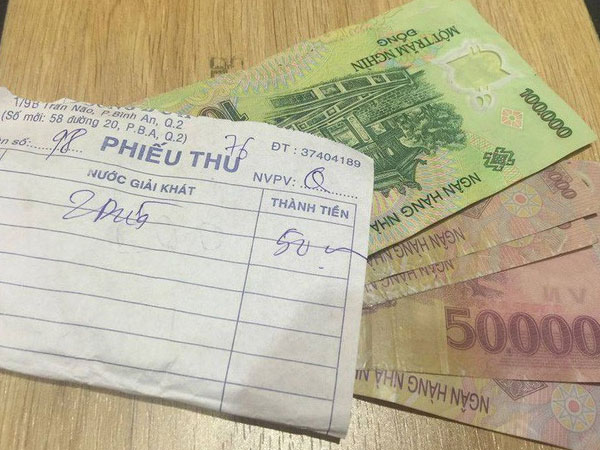 1/9B Trần Não, P.Bình An, Q.2
(Số mới: 58 đường 20, P.B.A, Q.2)
số: 98
PHIẾU THU
76
ĐT : 37404189
NVPV:
NƯỚC GIẢI KHÁT
THÀNH TIỀN
2 Dừa
50
MỘT TRĂM NGHÌN
ĐỒNG
100.000
NGÂN HÀNG NHÀ
0000
NGÂN HÀNG NHÀ
NGÂN HÀNG
VN
50000
NGÂN HÀNG NHÀ N